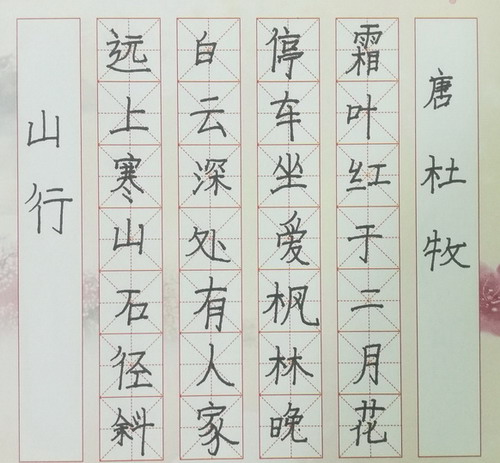 山行
远上寒山石径斜
白云深处有人家
停车坐爱枫林晚
霜叶红于二月花
唐杜牧